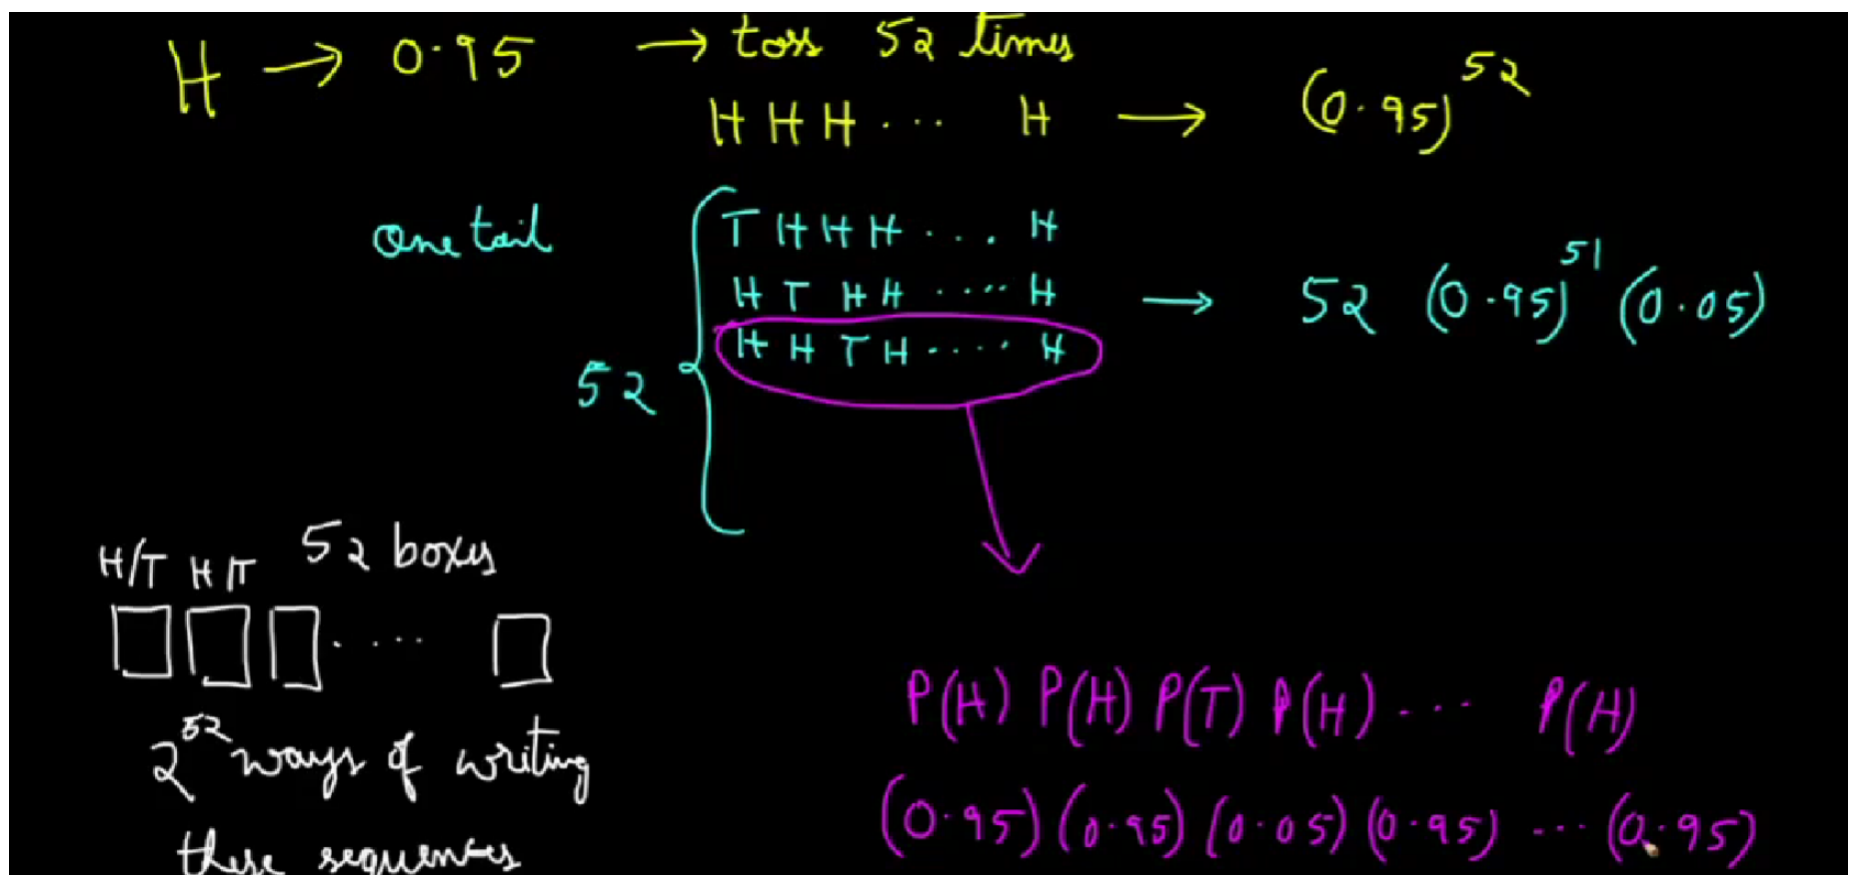 H → 0.95 → toss 52 times
H H H ... H → (0.95)^52
One tail
T H H H .... H
H T H H ..... H → 52 (0.95)^51 (0.05)
H H T H ..... H
52
52 boxes
H/T H/T
....
2^52 ways of writing
these sequences
P(H) P(H) P(T) P(H) ... P(H)
(0.95) (0.95) (0.05) (0.95) ... (0.95)